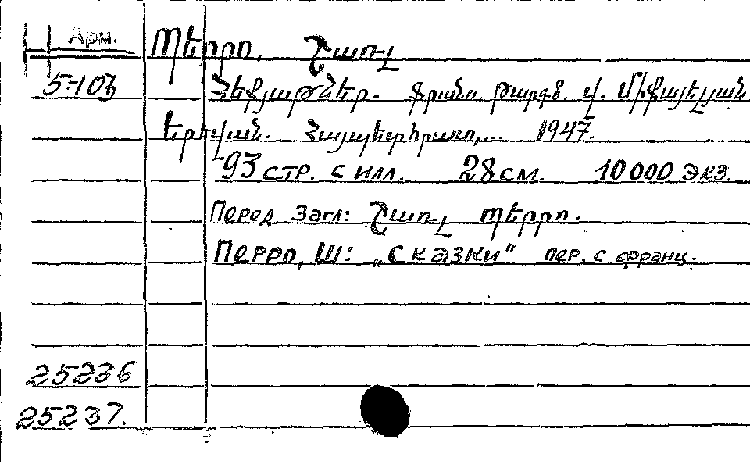 Арм. Պերրո, Շառլ
5-103 Հեքյաթներ. Ֆրանս. թարգմ. Վ. Միքայելյան
Երևան. Հայպետհրատ, 1947.
93 стр. с илл. 28 см. 10 000 экз.
Перед Загл: Շառլ Պերրո.
Перро, Ш: „Сказки" пер. с франц.
25236
25237.